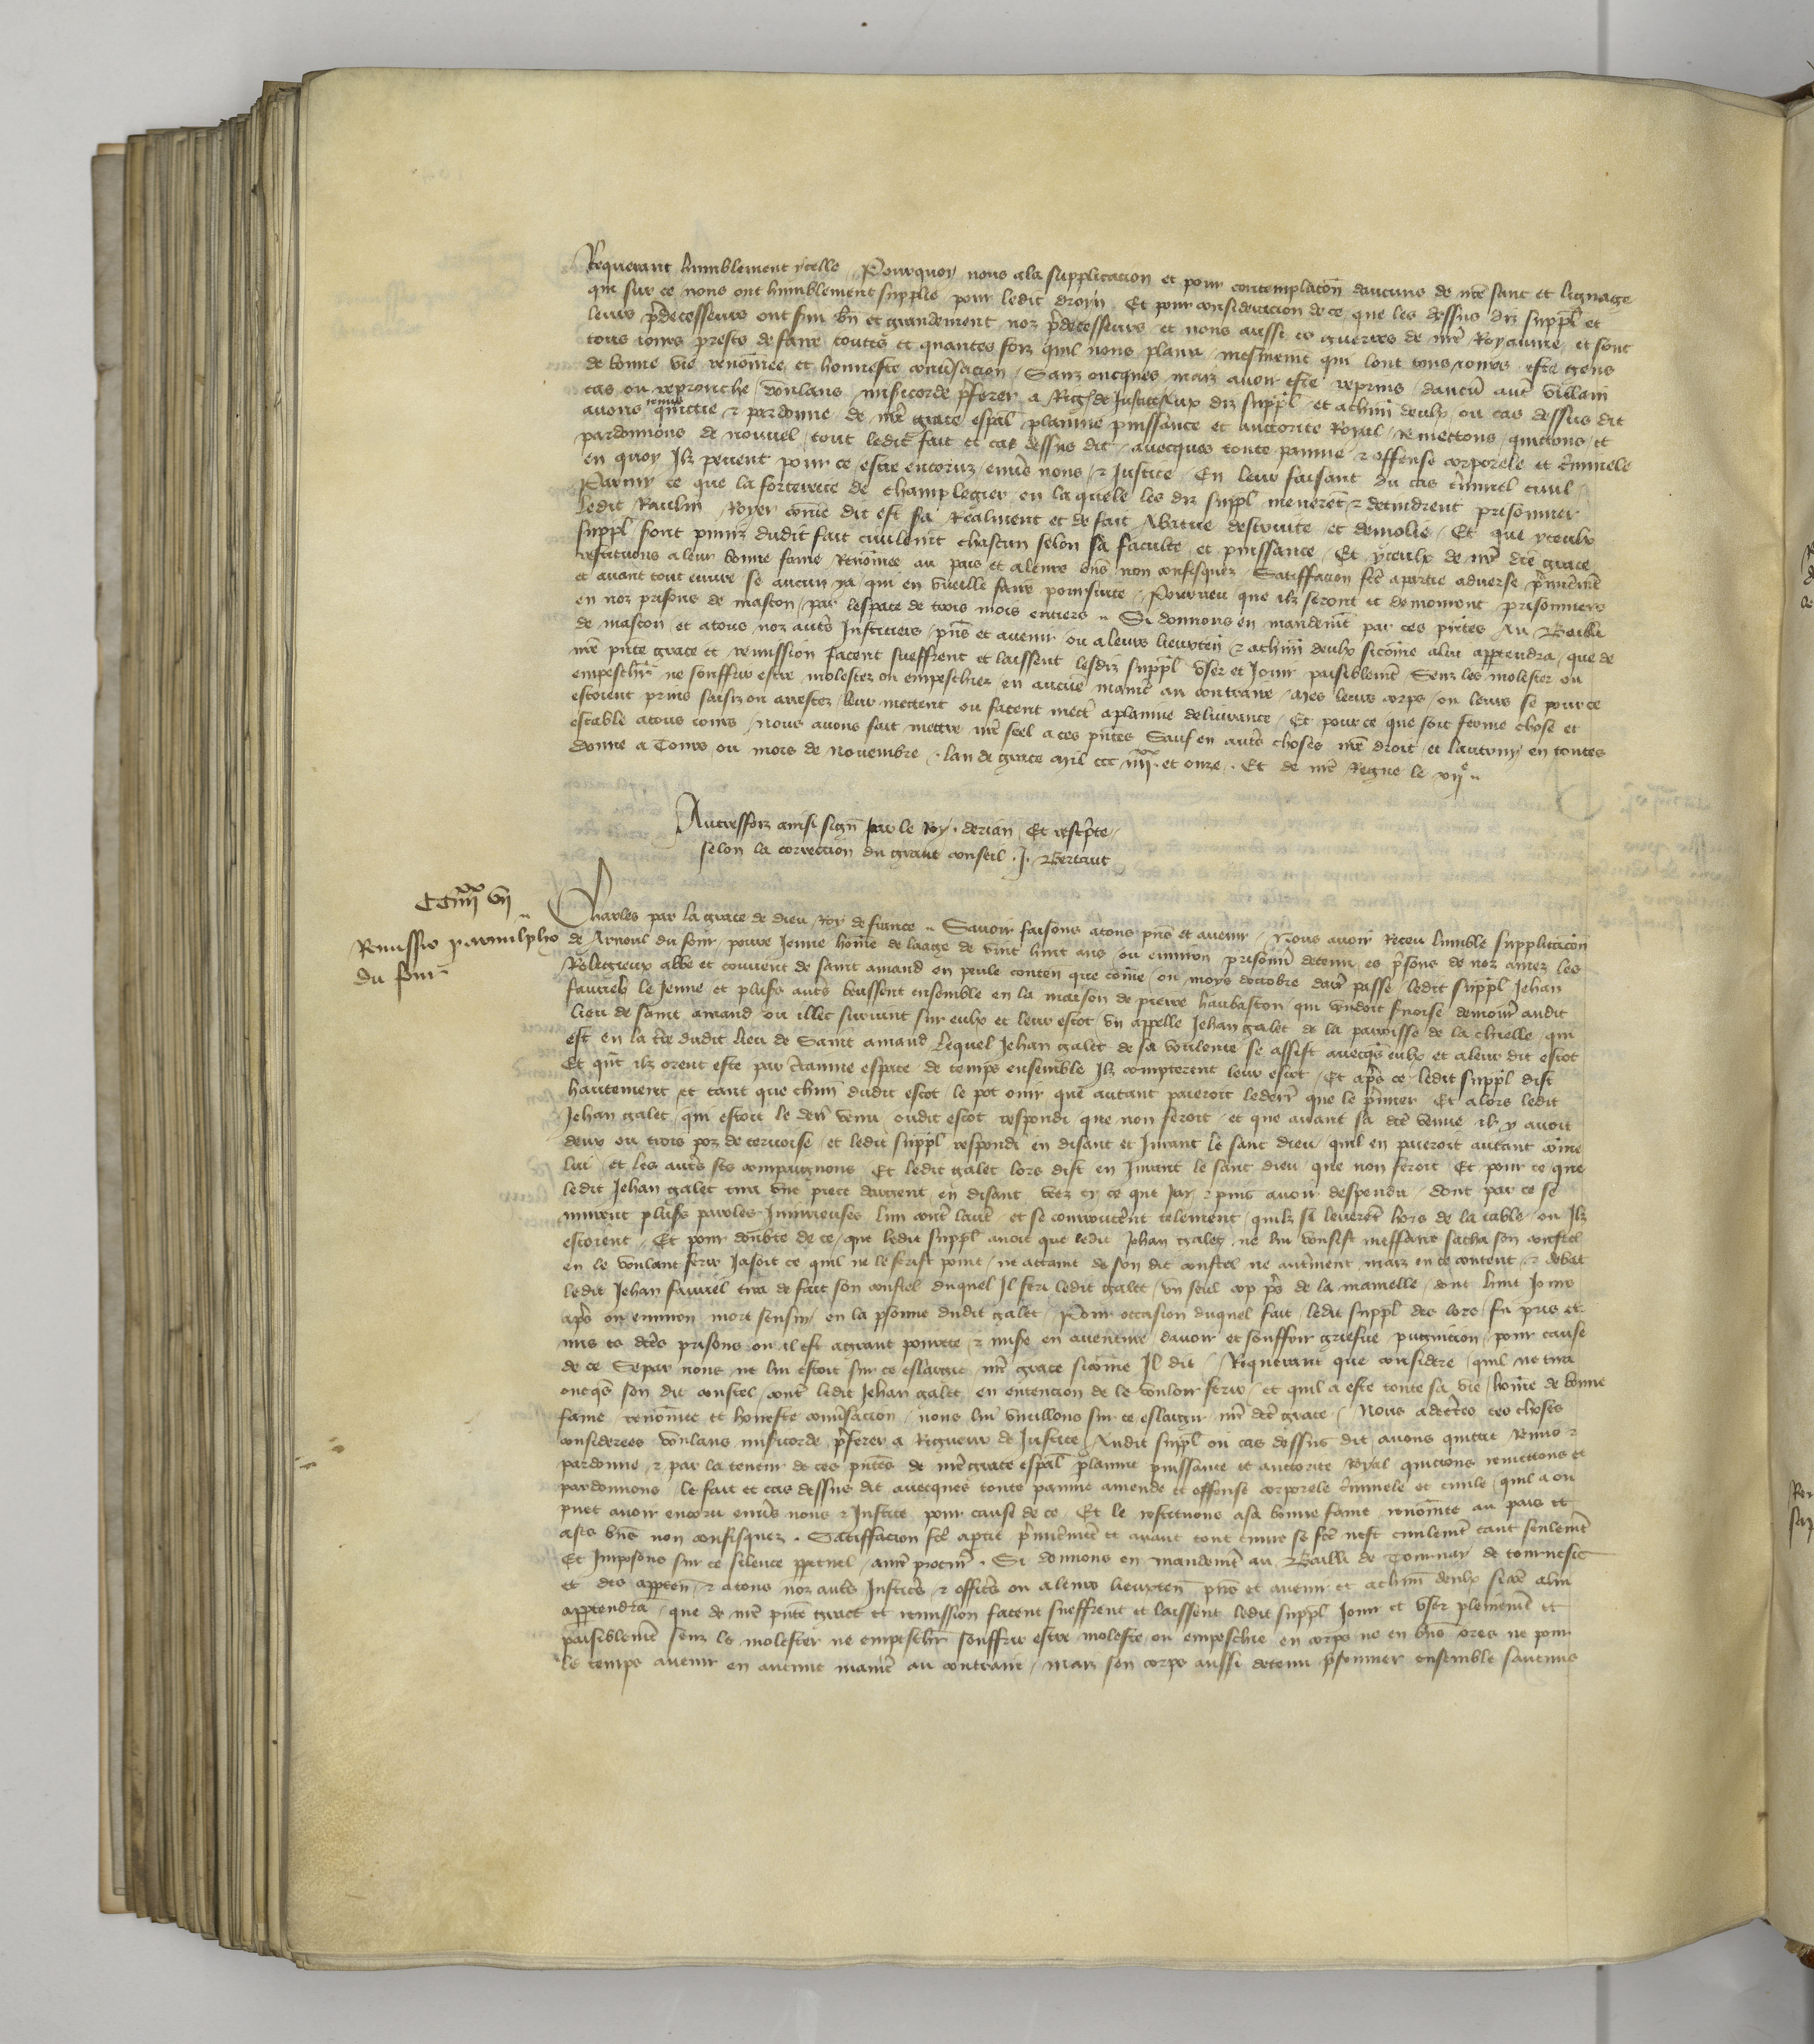 Requerant humblement ycelle Pourquoy nous ala supplicacion et pour contemplacon daucuns de nre sanc et lignage
qui sur ce nous ont humblement supplie pour ledit droyn Et pour consideracion de ce que les dessus diz suppl et
leurs predecesseurs ont bn et grandement noz predecesseurs et nous aussi es guerres de nre Royaume et sont
tous iours prests de faire toutes et quantes foiz quil nous plaira mesmemt qui sont tous iours este gens
de bonne vie renomee et honneste conusacion Sanz oncques maiz auoir este reprins daucun aut villain
cas ou reprouche voulans misericorde pferer a Rigr de Justice aux diz suppl et achun deulx ou cas dessus dit
auons remis quictie et pardonne de nre grace espal plainne puissance et auctorite Royal Remettons quictons et
pardonnons de nouuel tout ledit fait et cas dessus dit auecques toute painne et offense corporele et criminele
en quoy Ilz peuent pour ce estre encoruz enus nous et Justice En leur faisant du cas criminel ciuil
Parmy ce que la forterece de champlegier en laquele les diz suppl menerent et detindrent prisonnier
ledit Raulin Royer come dit est sa Realment et de fait Abatue destruite et demolie Et que yceulx
suppl sont puniz dudit fait ciuilemt chascun selon sa faculte et puissance Et yceulx de nre dce grace
restituons a leur bonne fame Renomee au pais et aleurs bns non confisquez Satiffacion fce apartie aduerse primeremt
et auant tout euure se aucun ya qui en vueille faire poursuite Pourueu que ilz seront et demorront prisonniers
en noz prisons de mascon par lespace de trois mois entiers Si donnons en mandemt par ces pntes Au Bailli
de mascon et atous noz auts Justiciers pns et auenir ou a leurs lieuxten et achun deulx sicome alui appertendra que de
nre pnte grace et remission facent sueffrent et laissent lesdiz suppl vser et Jouir paisiblemt Senz les molester ou
empeschr ne souffrir estre molestez ou empeschiez en aucune manie au contraire mes leurs corps ou leurs se pour ce
estoient prins saisiz ou arrestez leur mettent ou facent mectre aplainne deliurance Et pour ce que soit ferme chose et
estable atous iours Nous auons fait mettre nre seel a ces pntes Sauf en auts choses nre droit et lautruy en toutes
Donne a Tours ou mois de Nouembre lan de grace mil ccc iiiixx et onze Et de nre Regne le xije
Autressfoiz ainsi sign par le Roy derian Et rescpte
selon la correccion du grant conseil J. Bertaut
CCiiiixx vij
Remissio pro arnulpho
du four
Charles par la grace de dieu Roy de france Sauoir faisons atous pns et auenir Nous auoir Receu lumble supplicacion
de Arnoul du four poure Jenne home de laage de vint huit ans ou enuiron prisonnr detenu es prisons de noz amez les
Religieux abbe et couuent de saint amand en peule conten que come ou moys doctobre darr passe ledit suppl Jehan
fauriel le Jenne et plusrs auts beussent ensemble en la maison de pierre haubaston qui vendoit seruoise demour audit
lieu de saint amand ou illec suruint sur eulx et leur escot vn appelle Jehan galet de la parroisse de la chielle qui
est en la tre dudit lieu de Saint amand Lequel Jehan galet de sa voulente se assist auecqs eulx et aleur dit escot
Et qnt ilz orent este par ctainne espace de temps ensemble Ilz compterent leur escot Et aprs ce ledit suppl dist
haultement et tant que chun dudit escot le pot ouir que autant paieroit le derr que le primer Et alors ledit
Jehan galet qui estoit le derr venu oudit escot respondi que non feroit et que auant sa dce venue ilz y auoit
deux ou trois poz de ceruoise et ledit suppl respondi en disant et Jurant le sanc dieu quil en paieroit autant come
lui et les auts ses compaignons Et ledit galet lors dist en Jurant le sanc dieu que non feroit Et pour ce que
ledit Jehan galet tira vne piece dargent en disant vez cy ce que Jay et puis auoir despendu dont par ce se
murent plusrs paroles Iniurieuses lun contre lautre et se courroucerent telement quilz se leuerent hors de la table ou Ilz
estoient Et pour doubte de ce que ledit suppl auoit que ledit Jehan galet ne lui voulsist meffaire sacha son coustel
en le voulant ferir Jasoit ce quil ne le ferist point ne attaint de son dit coustel ne autrement maiz en ce content et debat
ledit Jehan fauriel tira de fait son coustel duquel Il feri ledit galet vn seul cop prs de la mamelle dont huit Jours
aprs ou enuiron mort sensuy en la psonne dudit galet Pour occasion duquel fait ledit suppl des lors fu pris et
mis es dces prisons ou il est agrant pourete et mise en auenture dauoir et souffrir griefue pugnicion pour cause
de ce Se par nous ne lui estoit sur ce eslargie nre grace sicome Il dit Requerant que considere quil ne tira
oncqs son dit coustel contre ledit Jehan galet en entencion de le vouloir ferir et quil a este toute sa vie home de bonne
fame renomee et honeste conusacion nous lui vueillons sur ce eslargir nre dce grace Nous adecertes ces choses
considerees voulans misericorde pferer a Rigueur de Justice Audit suppl ou cas dessus dit auons quictie Remis et
pardonne et par la teneur de ces pntes de nre grace espal plainne puissance et auctorite Royal quictons remettons et
pardonnons le fait et cas dessus dit auecques toute painne amende et offense corporele criminele et ciuile quil a ou
puet auoir encoru enus nous et Justice pour cause de ce Et le restituons asa bonne fame renomee au pais et
ases bns non confisquez Satiffacion fce aptie primeremt et auant tout euure se fce nest ciuilemt tant seulemt
Et Imposons sur ce silence ppetuel a nre procur Si donnons en mandemt au Bailli de Tournay de tournesis
et des apparten et atous noz auts Justicrs et officrs ou aleurs lieuxten pns et auenir et achun deulx sicome alui
appertendra que de nre pnte grace et remission facent sueffrent et laissent ledit suppl Jouir et vser plenemt et
paisiblemt senz le molester ne empeschr souffrir estre moleste ou empeschie en corps ne en bns ores ne pour
le temps auenir en aucune manie au contraire maiz son corps aussi detenu prisonnier ensemble saucuns